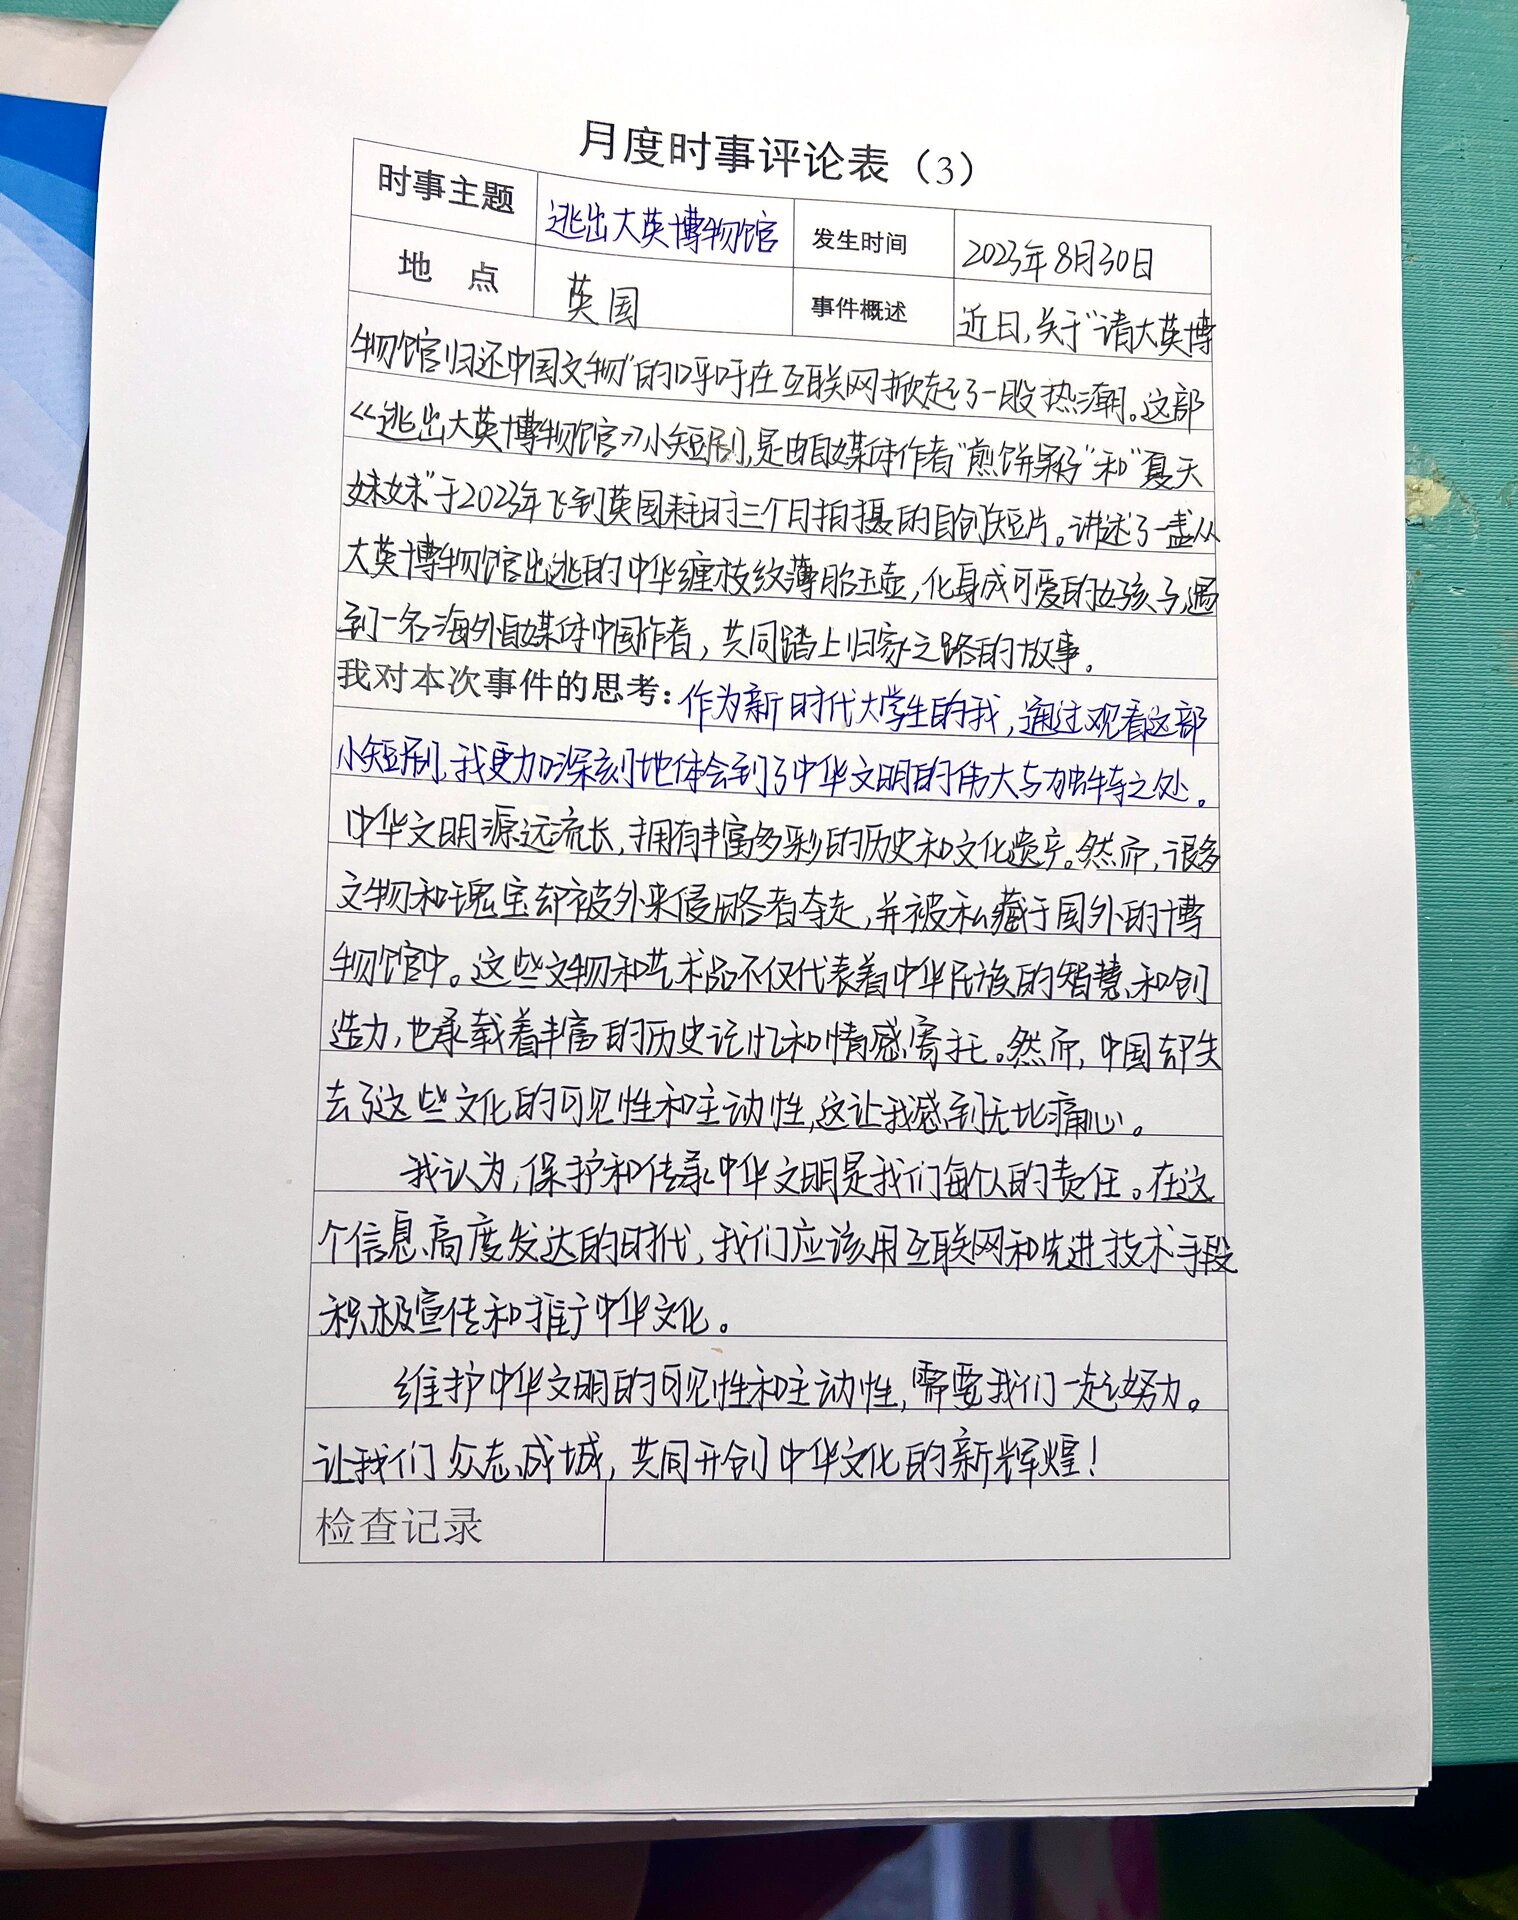 月度时事评论表（3）
时事主题 逃出大英博物馆 发生时间 2023年8月30日
地 点 英国 事件概述 近日，关于“请大英博
物馆归还中国文物”的呼吁在互联网掀起了一股热潮。这部
《逃出大英博物馆》小短剧，是由自媒体作者“煎饼果仔”和“夏天
妹妹”于2023年飞到英国耗时三个月拍摄的自创短片。讲述了一盏从
大英博物馆出逃的中华缠枝纹薄胎玉壶，化身成可爱的女孩子，遇
到一名海外自媒体中国作者，共同踏上归家之路的故事。
我对本次事件的思考：作为新时代大学生的我，通过观看这部
小短剧，我更加深刻地体会到了中华文明的伟大与独特之处。
中华文明源远流长，拥有丰富多彩的历史和文化遗产。然而，很多
文物和瑰宝却被外来侵略者夺走，并被私藏于国外的博
物馆中。这些文物和艺术品不仅代表着中华民族的智慧和创
造力，也承载着丰富的历史记忆和情感寄托。然而，中国却失
去了这些文化的可见性和主动性，这让我感到无比痛心。
我认为，保护和传承中华文明是我们每个人的责任。在这
个信息高度发达的时代，我们应该用互联网和先进技术手段
积极宣传和推广中华文化。
维护中华文明的可见性和主动性，需要我们一起努力。
让我们众志成城，共同开创中华文化的新辉煌！
检查记录